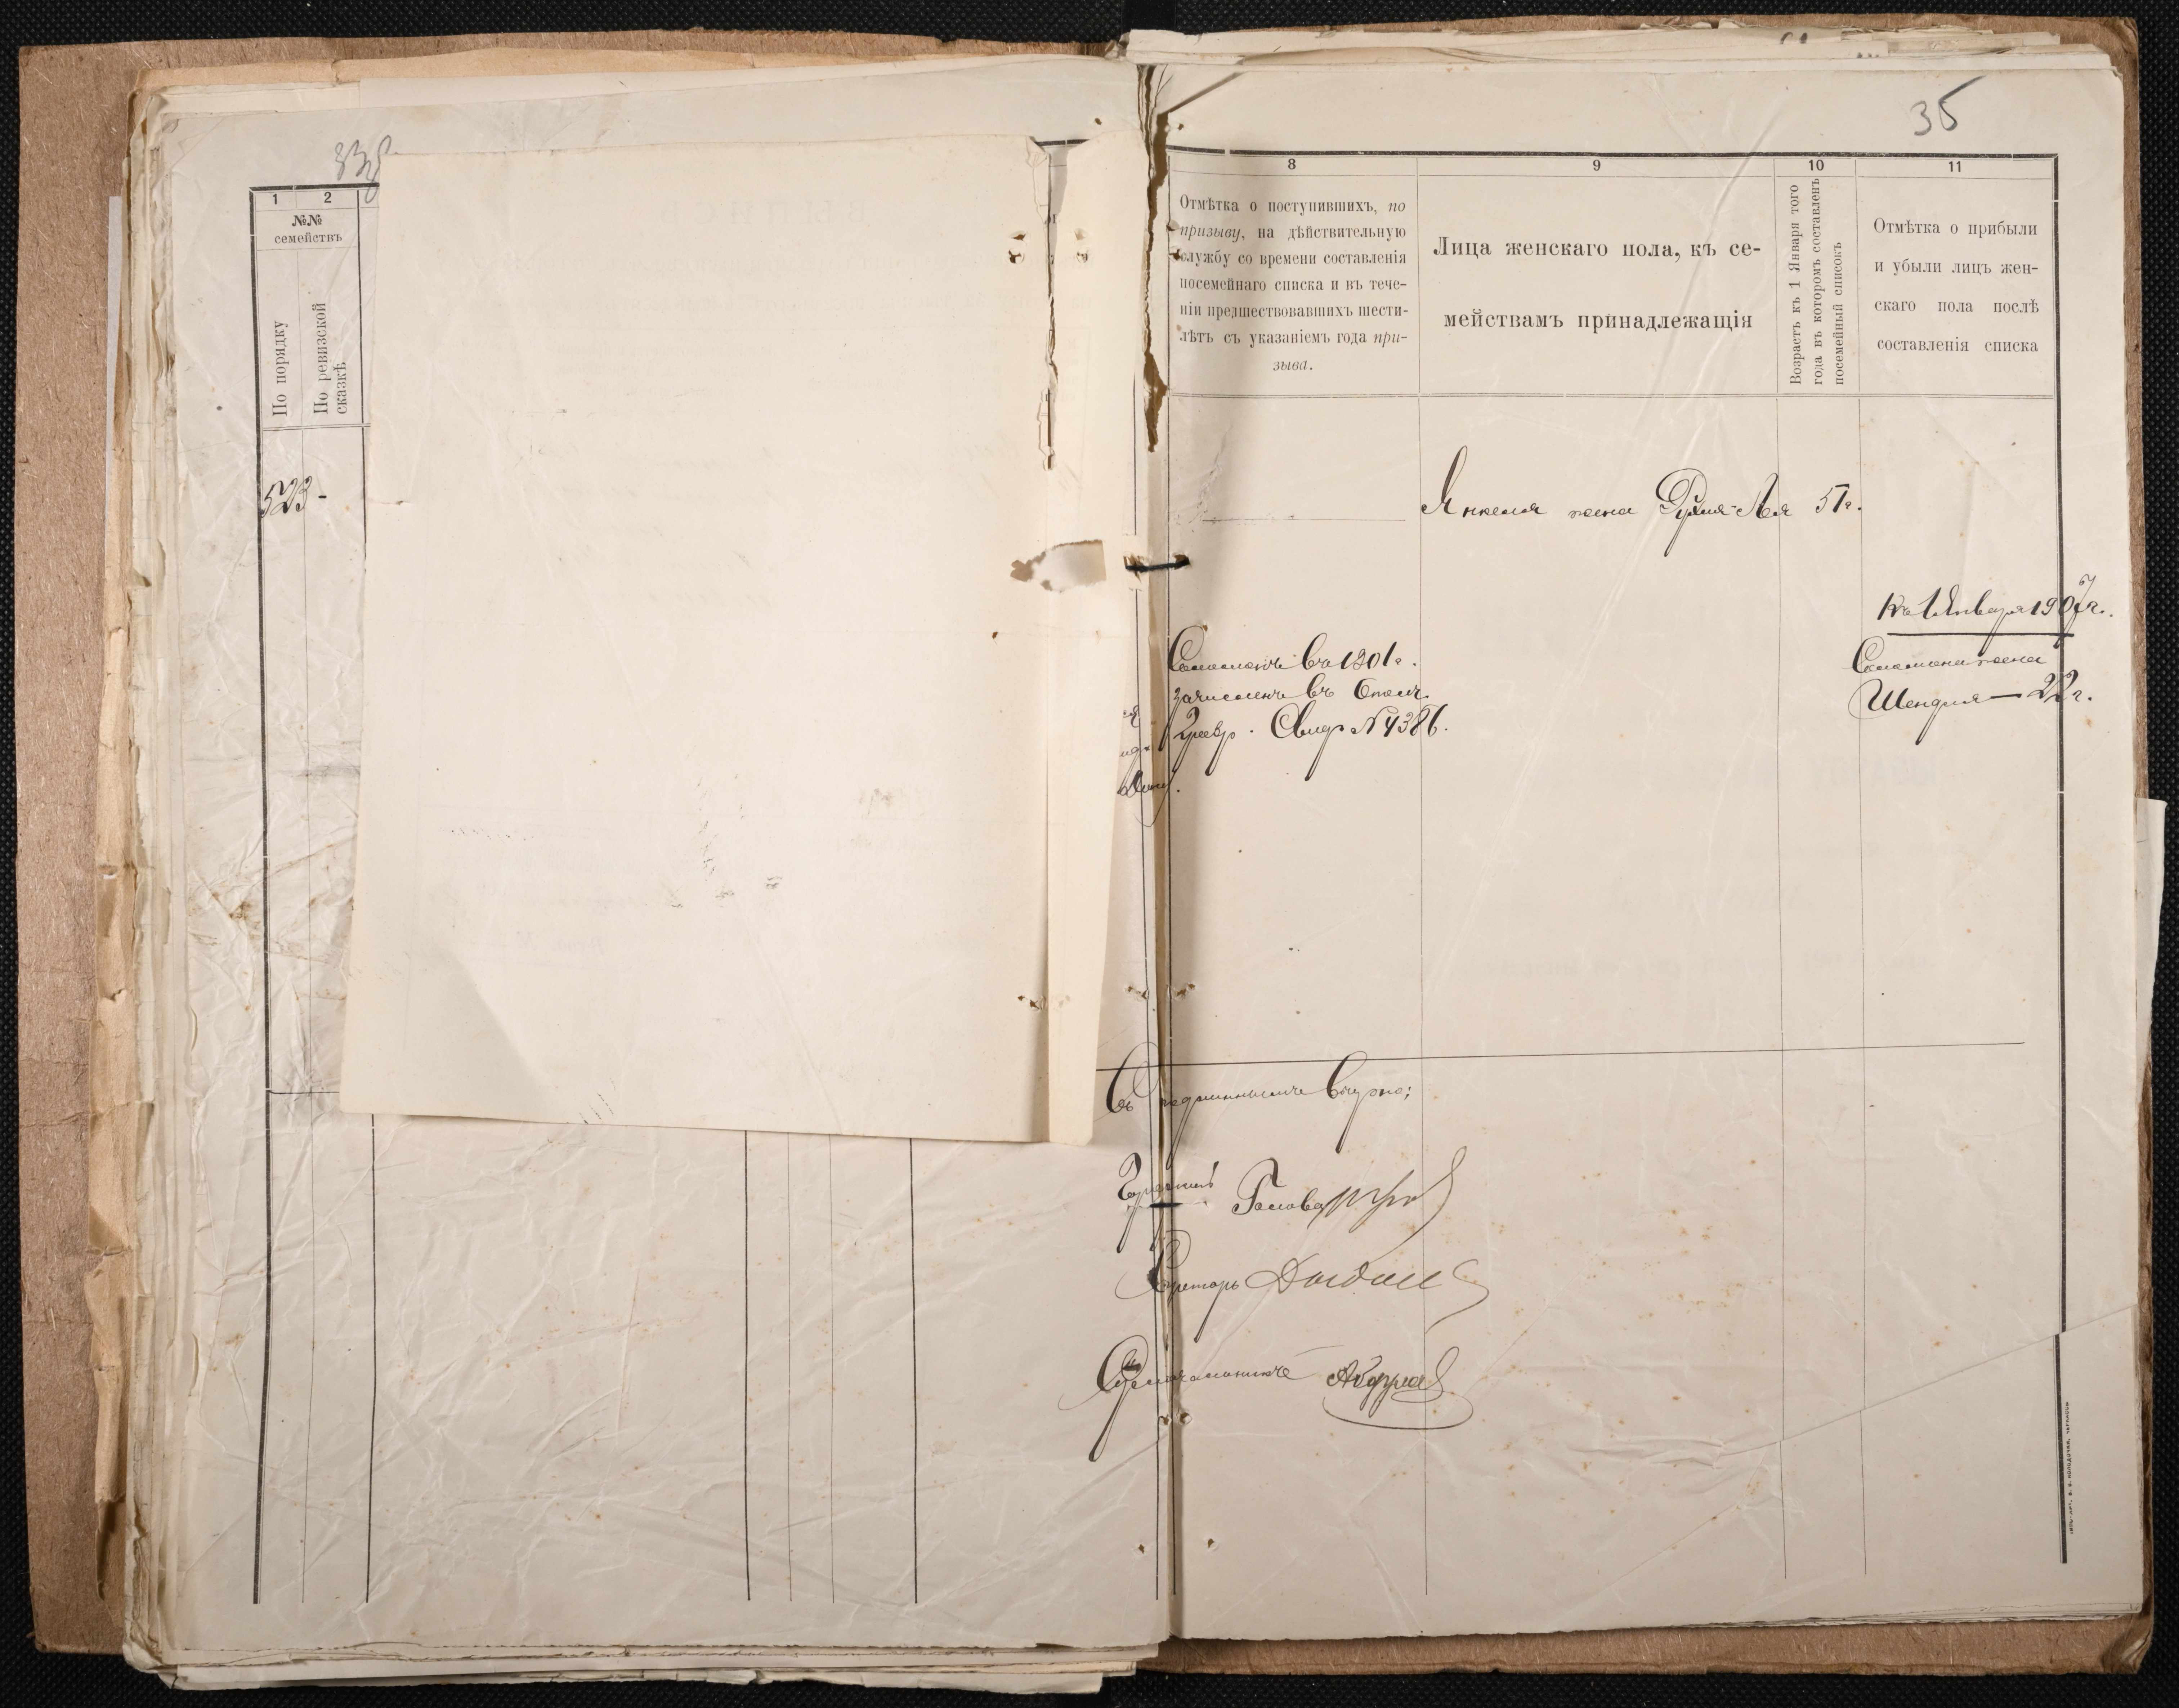 35
1
2
№№
семействъ
По порядку
По ревизской
сказкѣ
523-
8
9
10
11
Отмѣтка о поступившихъ, по
призыву, на дѣйствительную
службу со времени составленія
посемейнаго списка и въ тече-
ніи предшествовавшихъ шести-
лѣтъ съ указаніемъ года при-
зыва.
Лица женскаго пола, къ се-
мействамъ принадлежащія
Возрастъ къ 1 Января того
года въ которомъ составленъ
посемейный списокъ
Отмѣтка о прибыли
и убыли лицъ жен-
скаго пола послѣ
составленія списка
Янкеля жена Рухля-Лея 51 г.
Къ 1 Января 1907 г.
Соломона жена
Шендля — 22 г.
Соломонъ въ 1901 г.
зачисленъ въ Опол.
2 разр. Свид № 4386.
Съ подлиннымъ вѣрно:
Городской Голова
Секретарь
Столоначальникъ